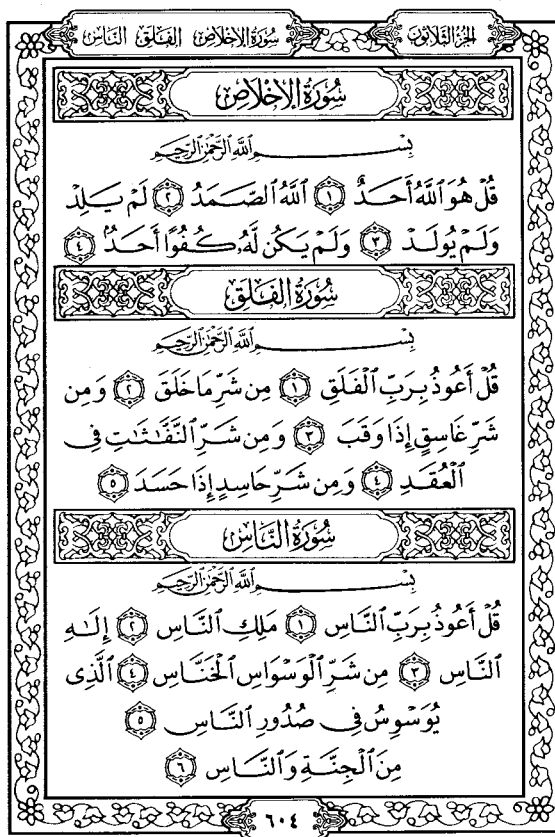 الجزء الثلاثون سورة الإخلاص الفلق الناس
سُورَةُ الإِخْلَاصِ
بِسْمِ ٱللَّهِ ٱلرَّحْمَٰنِ ٱلرَّحِيمِ
قُلْ هُوَ ٱللَّهُ أَحَدٌ ١ ٱللَّهُ ٱلصَّمَدُ ٢ لَمْ يَلِدْ
وَلَمْ يُولَدْ ٣ وَلَمْ يَكُن لَّهُۥ كُفُوًا أَحَدٌۢ ٤
سُورَةُ الفَلَقِ
بِسْمِ ٱللَّهِ ٱلرَّحْمَٰنِ ٱلرَّحِيمِ
قُلْ أَعُوذُ بِرَبِّ ٱلْفَلَقِ ١ مِن شَرِّ مَا خَلَقَ ٢ وَمِن
شَرِّ غَاسِقٍ إِذَا وَقَبَ ٣ وَمِن شَرِّ ٱلنَّفَّٰثَٰتِ فِى
ٱلْعُقَدِ ٤ وَمِن شَرِّ حَاسِدٍ إِذَا حَسَدَ ٥
سُورَةُ النَّاسِ
بِسْمِ ٱللَّهِ ٱلرَّحْمَٰنِ ٱلرَّحِيمِ
قُلْ أَعُوذُ بِرَبِّ ٱلنَّاسِ ١ مَلِكِ ٱلنَّاسِ ٢ إِلَٰهِ
ٱلنَّاسِ ٣ مِن شَرِّ ٱلْوَسْوَاسِ ٱلْخَنَّاسِ ٤ ٱلَّذِى
يُوَسْوِسُ فِى صُدُورِ ٱلنَّاسِ ٥
مِنَ ٱلْجِنَّةِ وَٱلنَّاسِ ٦
٦٠٤